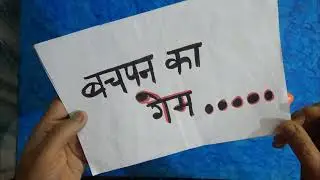 बचपन का
गेम .....